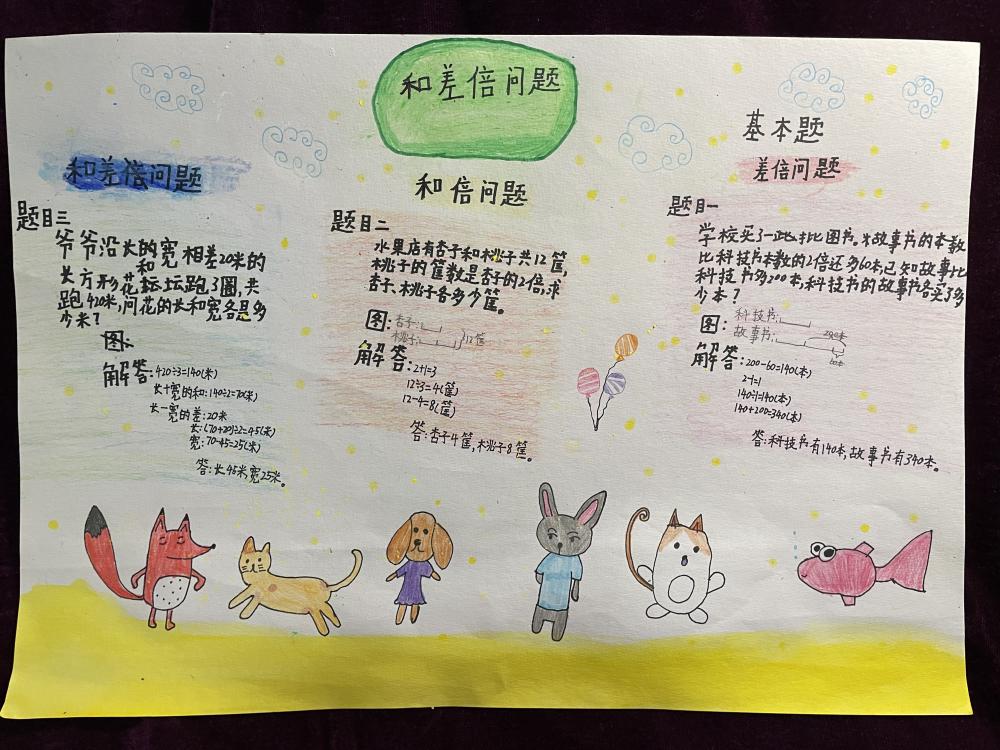 和差倍问题
和差倍问题
题目三
爷爷沿长的宽相差20米的
和
长方形花坛坛跑3圈,共
跑420米,问花的长和宽各是多
少米?
图:
解答:420÷3=140(米)
长+宽的和:140÷2=70(米)
长-宽的差:20米
长:(70+20)÷2=45(米)
宽:70-45=25(米)
答:长45米,宽25米。
和倍问题
题目二
水果店有杏子和桃子共12筐,
桃子的筐数是杏子的2倍,求
杏子、桃子各多少筐。
图:杏子:
桃子:
12筐
解答:2+1=3
12÷3=4(筐)
12-4=8(筐)
答:杏子4筐,桃子8筐。
基本题
差倍问题
题目一
学校买了一批图书。故事书的本数
比科技书本数的2倍还多60本,已知故事书比
科技书多200本,科技书的故事书各买了多
少本?
图:科技书:
故事书:
200本
60本
解答:200-60=140(本)
2-1=1
140÷1=140(本)
140+200=340(本)
答:科技书有140本,故事书有340本。